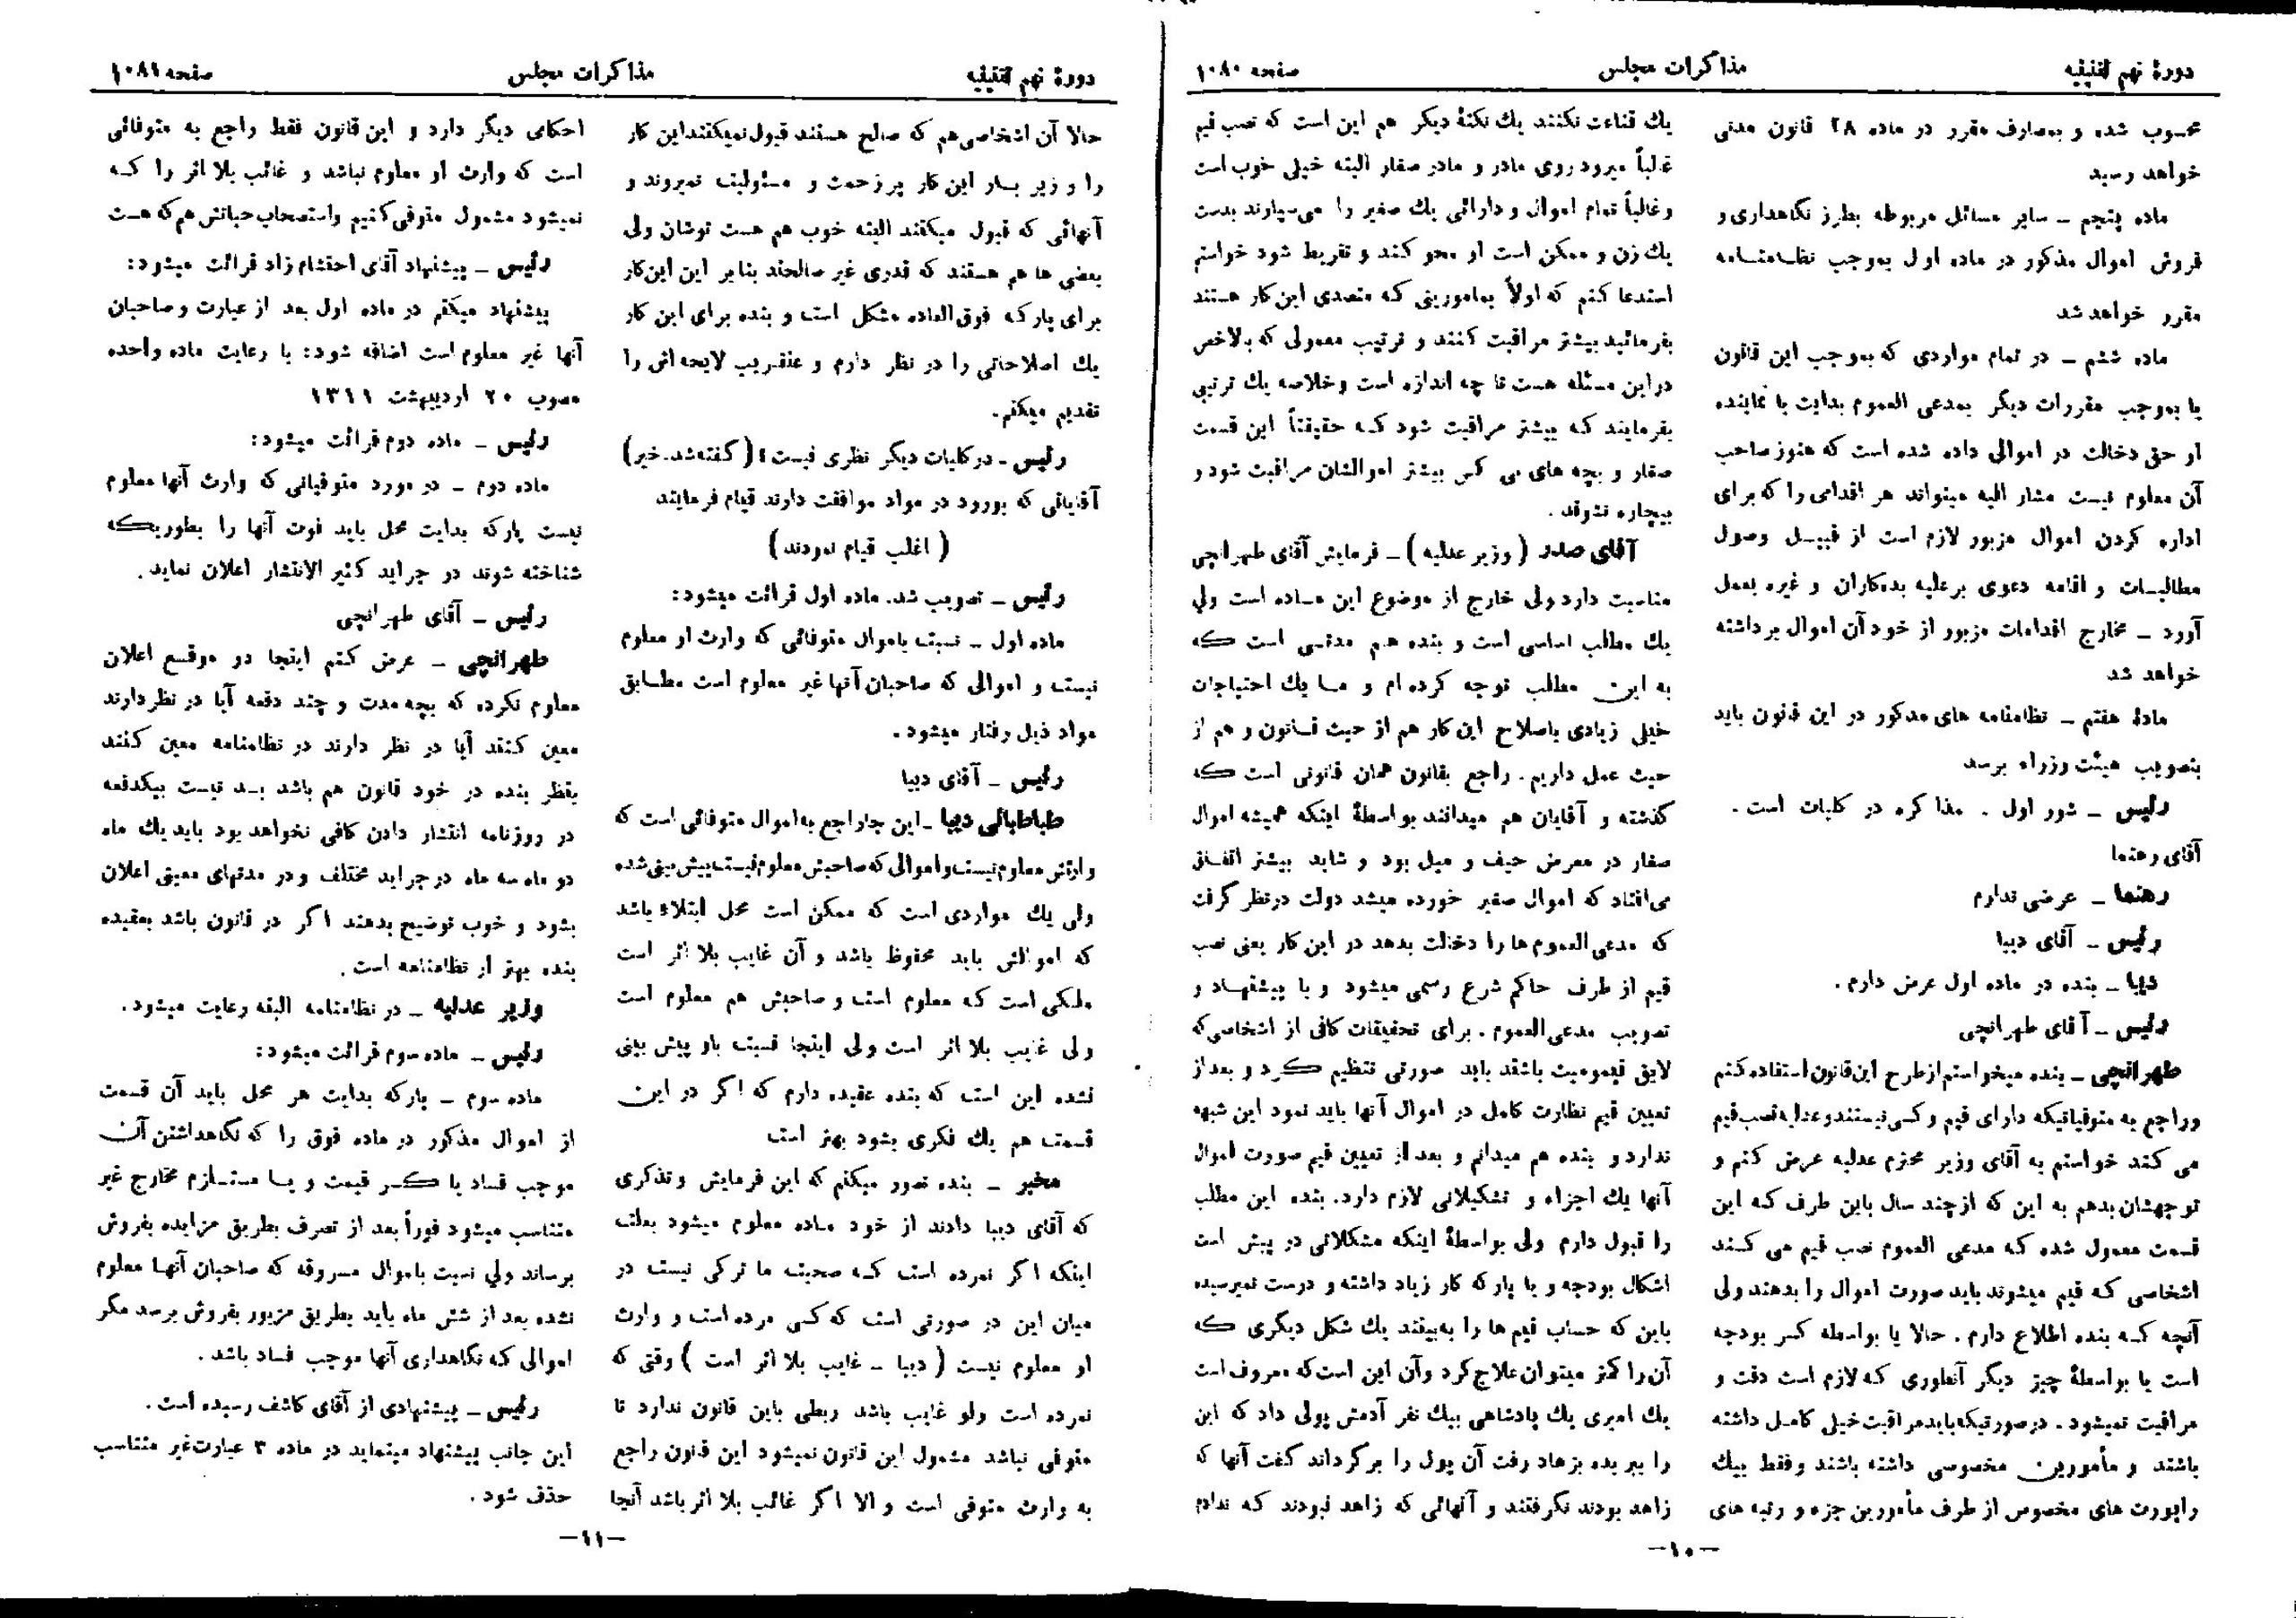 دورهٔ نهم تقنینیه
مذاکرات مجلس
صفحه ۱۰۸۰
محسوب شده و بمصارف مقرر در ماده ۲۸ قانون مدنی
خواهد رسید
ماده پنجم ـ سایر مسائل مربوطه بطرز نگاهداری و
فروش اموال مذکور در ماده اول بموجب نظامنامه
مقرر خواهد شد
ماده ششم ـ در تمام مواردی که بموجب این قانون
یا بموجب مقررات دیگر بمدعی العموم بدایت یا نماینده
او حق دخالت در اموالی داده شده است که هنوز صاحب
آن معلوم نیست مشار الیه میتواند هر اقدامی را که برای
اداره کردن اموال مزبور لازم است از قبیل وصول
مطالبات و اقامه دعوی بر علیه بدهکاران و غیره بعمل
آورد ـ مخارج اقدامات مزبور از خود آن اموال برداشته
خواهد شد
مادهٔ هفتم ـ نظامنامه های مذکور در این قانون باید
بتصویب هیئت وزراء برسد
رئیس ـ شور اول . مذاکره در کلیات است .
آقای رهنما
رهنما ـ عرضی ندارم
رئیس ـ آقای دیبا
دیبا ـ بنده در ماده اول عرض دارم .
رئیس ـ آقای طهرانچی
طهرانچی ـ بنده میخواستم از طرح این قانون استفاده کنم
و راجع به متوفیاتیکه دارای قیم و کسی نیستند و عدلیه نصب قیم
می کند خواستم به آقای وزیر محترم عدلیه عرض کنم و
توجهشان بدهم به این که از چند سال باین طرف که این
قسمت معمول شده که مدعی العموم نصب قیم می کند
اشخاصی که قیم میشوند باید صورت اموال را بدهند ولی
آنچه که بنده اطلاع دارم . حالا یا بواسطه کسر بودجه
است یا بواسطهٔ چیز دیگر آنطوری که لازم است دقت و
مراقبت نمیشود . در صورتیکه باید مراقبت خیلی کامل داشته
باشند و مأمورین مخصوصی داشته باشند و فقط بیک
راپورت های مخصوص از طرف مأمورین جزء و رتبه های
یك قناعت نکنند یك نکتهٔ دیگر هم این است که نصب قیم
غالباً میرود روی مادر و مادر صغار البته خیلی خوب است
و غالباً تمام اموال و دارائی یك صغیر را می سپارند بدست
یك زن و ممکن است او محو کند و تفریط شود خواستم
استدعا کنم که اولاً بمامورینی که متصدی این کار هستند
بفرمائید بیشتر مراقبت کنند و ترتیب معمولی که بالاخص
در این مسئله هست تا چه اندازه است و خلاصه یك ترتیبی
بفرمایند که بیشتر مراقبت شود که حقیقتاً این قسمت
صغار و بچه های بی کس بیشتر اموالشان مراقبت شود و
بیچاره نشوند .
آقای صدر ( وزیر عدلیه ) ـ فرمایش آقای طهرانچی
مناسبت دارد ولی خارج از موضوع این ماده است ولی
یك مطلب اساسی است و بنده هم مدتی است که
به این مطلب توجه کرده ام و ما یك احتیاجات
خیلی زیادی باصلاح این کار هم از حیث قانون و هم از
حیث عمل داریم . راجع بقانون همان قانونی است که
گذشته و آقایان هم میدانند بواسطهٔ اینکه همیشه اموال
صغار در معرض حیف و میل بود و شاید بیشتر اتفاق
می افتاد که اموال صغیر خورده میشد دولت در نظر گرفت
که مدعی العموم ها را دخالت بدهد در این کار یعنی نصب
قیم از طرف حاکم شرع رسمی میشود و با پیشنهاد و
تصویب مدعی العموم . برای تحقیقات کافی از اشخاصی که
لایق قیمومیت باشند باید صورتی تنظیم کرد و بعد از
تعیین قیم نظارت کامل در اموال آنها باید نمود این شبهه
ندارد و بنده هم میدانم و بعد از تعیین قیم صورت اموال
آنها یك اجزاء و تشکیلاتی لازم دارد . بنده این مطلب
را قبول دارم ولی بواسطهٔ اینکه مشکلاتی در پیش است
اشکال بودجه و یا پارکه کار زیاد داشته و درست نمیرسیده
باین که حساب قیم ها را به بینند یك شکل دیگری که
آن را کمتر میتوان علاج کرد و آن این است که معروف است
یك امیری یك پادشاهی بیك نفر آدمش پولی داد که این
را ببر بده بزهاد رفت آن پول را برگرداند گفت آنها که
زاهد بودند نگرفتند و آنهائی که زاهد نبودند که ندادم
ـ۱۰ـ
دورهٔ نهم تقنینیه
مذاکرات مجلس
صفحه ۱۰۸۱
حالا آن اشخاصی هم که صالح هستند قبول نمیکنند این کار
را و زیر بار این کار پر زحمت و مسئولیت نمیروند و
آنهائی که قبول میکنند البته خوب هم هست توشان ولی
بعضی ها هم هستند که قدری غیر صالحند بنابر این این کار
برای پارکه فوق العاده مشکل است و بنده برای این کار
یك اصلاحاتی را در نظر دارم و عنقریب لایحه اش را
تقدیم میکنم .
رئیس ـ در کلیات دیگر نظری نیست ؟ ( گفته شد ـ خیر )
آقایانی که بورود در مواد موافقت دارند قیام فرمایند
( اغلب قیام نمودند )
رئیس ـ تصویب شد . ماده اول قرائت میشود :
ماده اول ـ نسبت باموال متوفائی که وارث او معلوم
نیست و اموالی که صاحبان آنها غیر معلوم است مطابق
مواد ذیل رفتار میشود .
رئیس ـ آقای دیبا
طباطبائی دیبا ـ این جا راجع به اموال متوفائی است که
وارثش معلوم نیست و اموالی که صاحبش معلوم نیست پیش بینی شده
ولی یك مواردی است که ممکن است محل ابتلاء باشد
که اموالش باید محفوظ باشد و آن غایب بلا اثر است
ملکی است که معلوم است و صاحبش هم معلوم است
ولی غایب بلا اثر است ولی اینجا نسبت باو پیش بینی
نشده این است که بنده عقیده دارم که اگر در این
قسمت هم یك فکری بشود بهتر است
مخبر ـ بنده تصور میکنم که این فرمایش و تذکری
که آقای دیبا دادند از خود ماده معلوم میشود بعلت
اینکه اگر نمرده است که صحبت ما ترکی نیست در
میان این در صورتی است که کسی مرده است و وارث
او معلوم نیست ( دیبا ـ غایب بلا اثر است ) وقتی که
نمرده است ولو غایب باشد ربطی باین قانون ندارد تا
متوفی نباشد مشمول این قانون نمیشود این قانون راجع
به وارث متوفی است و الا اگر غائب بلا اثر باشد آنجا
احکامی دیگر دارد و این قانون فقط راجع به متوفائی
است که وارث او معلوم نباشد و غائب بلا اثر را که
نمیشود مشمول متوفی کنیم و استصحاب حیاتش هم که هست
رئیس ـ پیشنهاد آقای احتشام زاد قرائت میشود :
پیشنهاد میکنم در ماده اول بعد از عبارت و صاحبان
آنها غیر معلوم است اضافه شود : با رعایت ماده واحده
مصوب ۲۰ اردیبهشت ۱۳۱۱
رئیس ـ ماده دوم قرائت میشود :
ماده دوم ـ در مورد متوفیاتی که وارث آنها معلوم
نیست پارکه بدایت محل باید فوت آنها را بطوریکه
شناخته شوند در جراید کثیر الانتشار اعلان نماید .
رئیس ـ آقای طهرانچی
طهرانچی ـ عرض کنم اینجا در موقع اعلان
معلوم نکرده که بچه مدت و چند دفعه آیا در نظر دارند
معین کنند آیا در نظر دارند در نظامنامه معین کنند
بنظر بنده در خود قانون هم باشد بد نیست بیکدفعه
در روزنامه انتشار دادن کافی نخواهد بود باید یك ماه
دو ماه سه ماه در جراید مختلف و در مدتهای معینی اعلان
بشود و خوب توضیح بدهند اگر در قانون باشد بعقیده
بنده بهتر از نظامنامه است .
وزیر عدلیه ـ در نظامنامه البته رعایت میشود .
رئیس ـ ماده سوم قرائت میشود :
ماده سوم ـ پارکه بدایت هر محل باید آن قسمت
از اموال مذکور در ماده فوق را که نگاهداشتن آن
موجب فساد یا کسر قیمت و یا مستلزم مخارج غیر
متناسب میشود فوراً بعد از تصرف بطریق مزایده بفروش
برساند ولی نسبت باموال مسروقه که صاحبان آنها معلوم
نشده بعد از شش ماه باید بطریق مزبور بفروش برسد مگر
اموالی که نگاهداری آنها موجب فساد باشد .
رئیس ـ پیشنهادی از آقای کاشف رسیده است .
این جانب پیشنهاد مینماید در ماده ۳ عبارت غیر متناسب
حذف شود .
ـ۱۱ـ